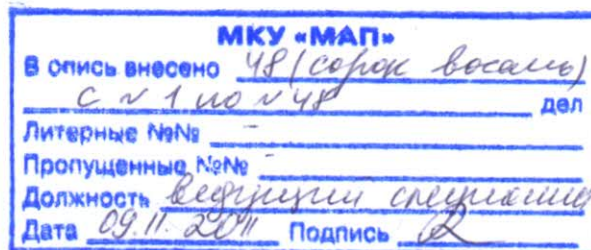 МКУ «МАП»
В опись внесено 48 (сорок восемь)
с № 1 по № 48 дел
Литерные №№ -
Пропущенные №№ -
Должность ведущий специалист
Дата 09.11.2011 Подпись